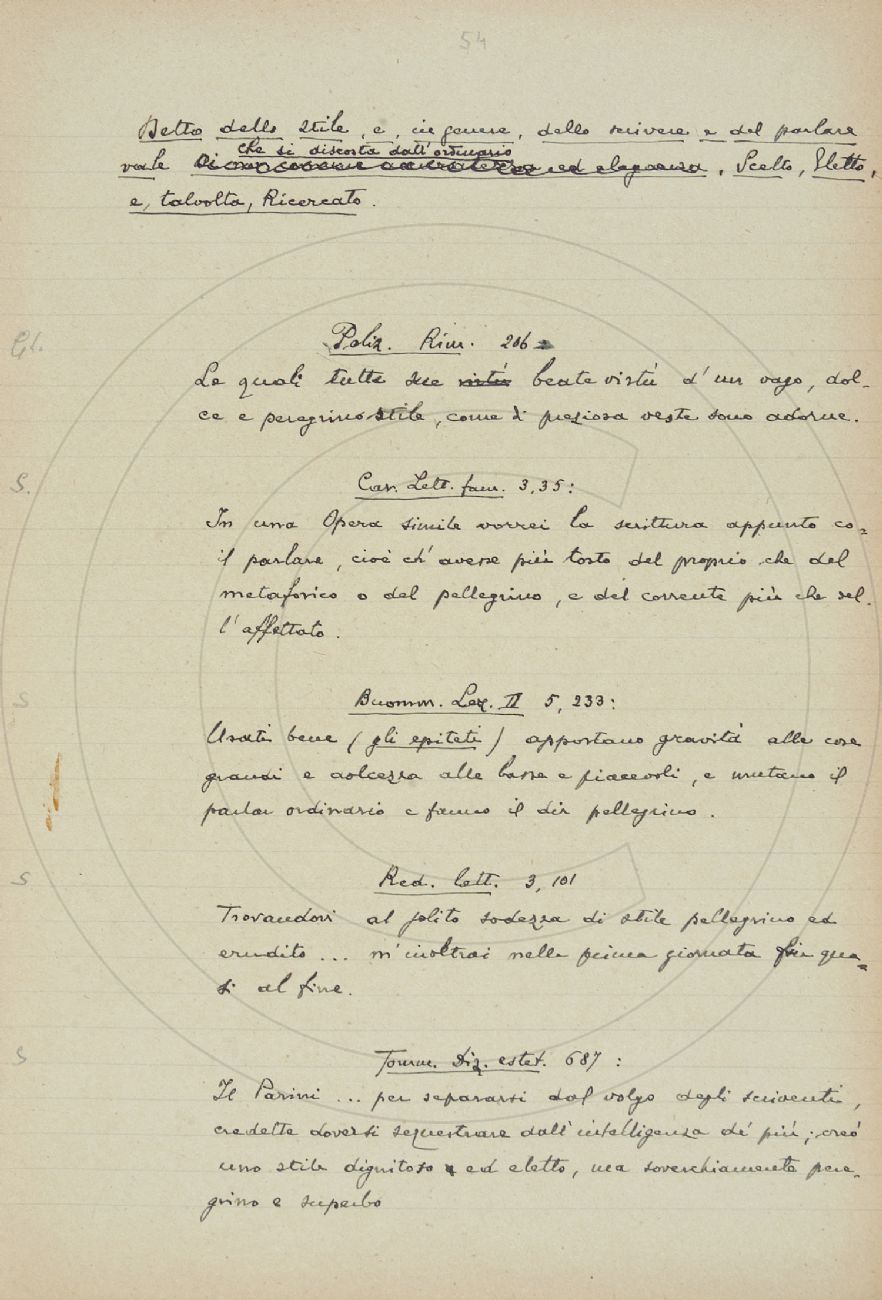 54
Detto dello stile, e, in genere, dello scrivere e del parlare
che si discosta dall'ordinario
vale ed eleganza, Scelto, Eletto,
e, talvolta, Ricercato.
Gl.
Poliz. Rim. 206
Le quali tutte sue virtú beate virtú d'un vago, dol-
ce e peregrino stile, come di preziosa veste sono adorne.
S.
Car. Lett. fam. 3,35:
In una Opera simile vorrei la scrittura appunto co=
il parlare, cioè ch'avesse più tosto del proprio che del
metaforico o del pellegrino, e del corrente più che del-
l'affettato.
S
Buomm. Lez. II 5, 233:
Usati bene (gli epiteti) apportano gravità alle cose
grandi e dolcezza alle basse e piacevoli, e mutano il
parlar ordinario e fanno il dir pellegrino.
S
Red. lett. 3, 101
Trovandovi al solito sodezza di stile pellegrino ed
erudito ... m'inoltrai nella prima giornata fin qua=
si al fine.
S
Tomm. Diz. estet. 687:
Il Parini ... per separarsi dal volgo degli scriventi,
credette doversi sequestrare dall'intelligenza de' più; creò
uno stile dignitoso ed eletto, ma soverchiamente pere-
grino e superbo